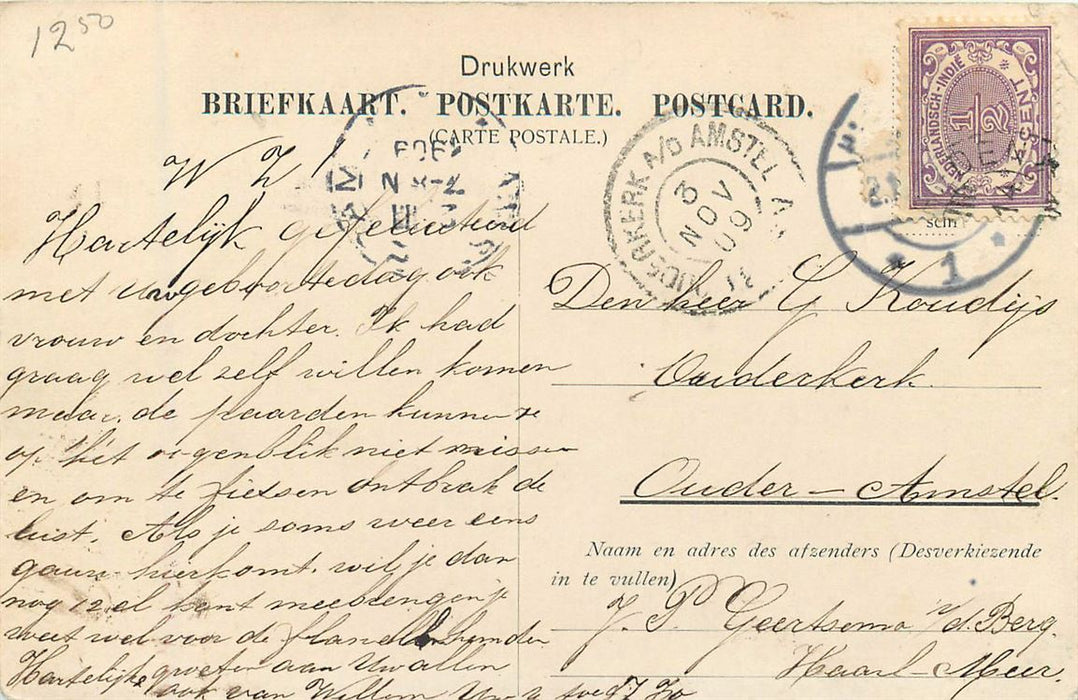 12 50
Drukwerk
BRIEFKAART. POSTKARTE. POSTCARD.
(CARTE POSTALE.)
OUDERKERK A/D AMSTEL
3 NOV 09
NEDERLANDSCH-INDIË
1/2
CENT
1
schr
W Z !
Hartelijk gefeliciteerd
met uw geboortedag ook
vrouw en dochter. Ik had
graag wel zelf willen komen
maar de paarden kunnen ze
op het oogenblik niet missen
en om te fietsen ontbrak de
lust. Als je soms weer eens
gauw hierkomt. wil je dan
nog 12 el kant meebrengen je
weet wel voor de flanellen hemden
Hartelijke groeten aan U allen
ook van Willem
Den heer G Koudijs
Ouderkerk
Ouder-Amstel.
Naam en adres des afzenders (Desverkiezende
in te vullen)
J. P. Geertsema v/d. Berg.
Haarl-Meer.